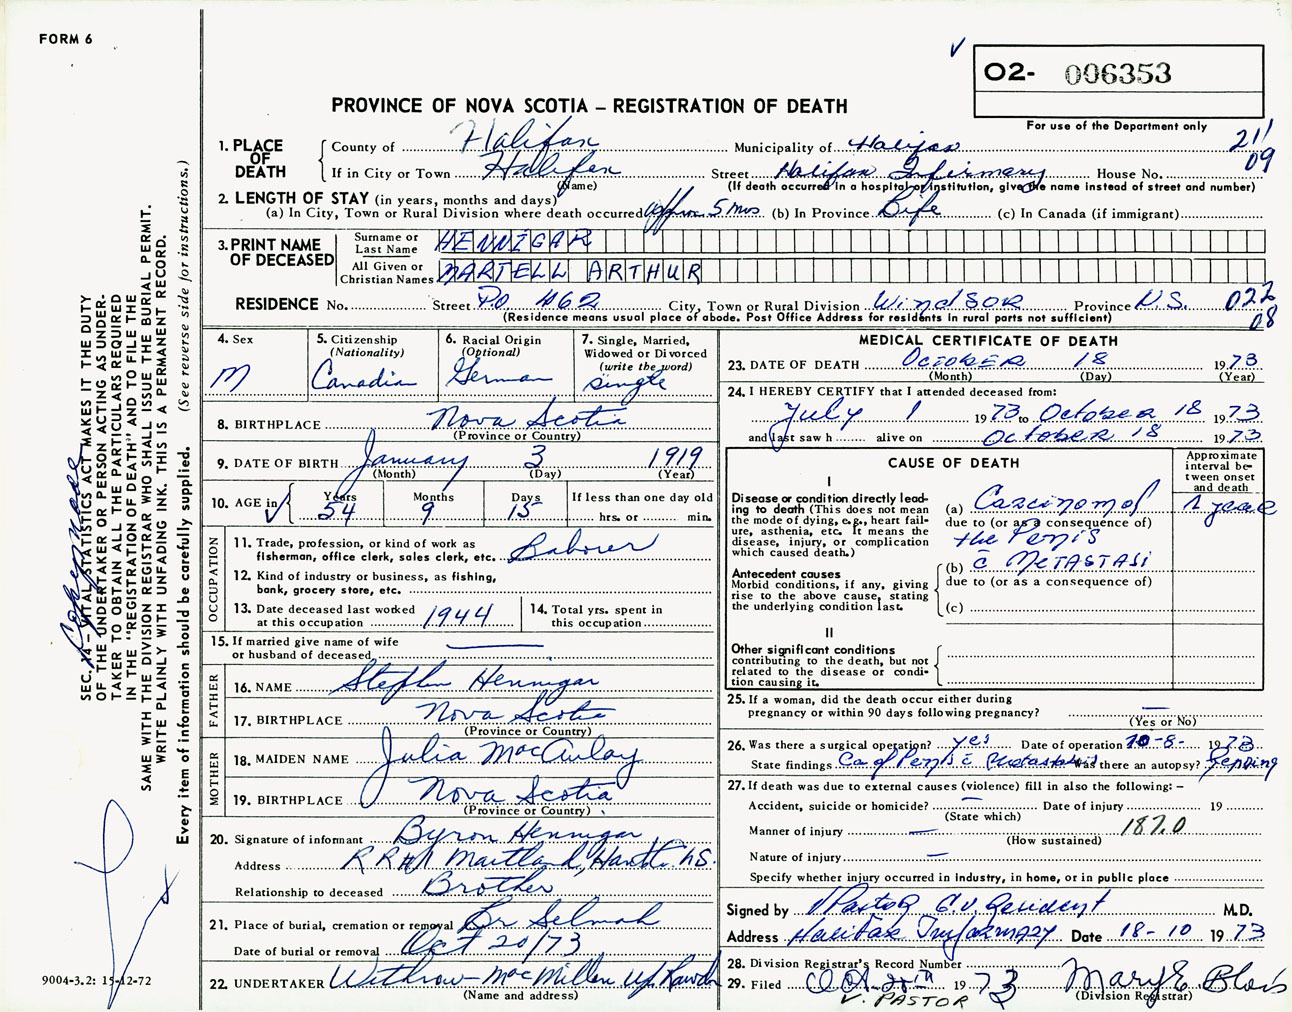 FORM 6
O2- 006353
For use of the Department only
PROVINCE OF NOVA SCOTIA – REGISTRATION OF DEATH
1. PLACE OF DEATH
County of Halifax Municipality of Halifax 21/
09
If in City or Town Halifax Street Halifax Infirmary House No.
(Name) (If death occurred in a hospital or institution, give the name instead of street and number)
2. LENGTH OF STAY (in years, months and days)
(a) In City, Town or Rural Division where death occurred approx 5 mos (b) In Province Life (c) In Canada (if immigrant)
3. PRINT NAME OF DECEASED
Surname or Last Name HENNIGAR
All Given or Christian Names MARTELL ARTHUR
RESIDENCE No. Street P.O. 462 City, Town or Rural Division Windsor Province N.S. 022
08
(Residence means usual place of abode. Post Office Address for residents in rural parts not sufficient)
4. Sex M
5. Citizenship (Nationality) Canadian
6. Racial Origin (Optional) German
7. Single, Married, Widowed or Divorced (write the word) single
8. BIRTHPLACE Nova Scotia
(Province or Country)
9. DATE OF BIRTH January 3 1919
(Month) (Day) (Year)
10. AGE in Years 54 Months 9 Days 15 If less than one day old
hrs. or min.
OCCUPATION
11. Trade, profession, or kind of work as fisherman, office clerk, sales clerk, etc. Laborer
12. Kind of industry or business, as fishing, bank, grocery store, etc.
13. Date deceased last worked at this occupation 1944
14. Total yrs. spent in this occupation
15. If married give name of wife or husband of deceased
FATHER
16. NAME Stephen Hennigar
17. BIRTHPLACE Nova Scotia
(Province or Country)
MOTHER
18. MAIDEN NAME Julia MacAulay
19. BIRTHPLACE Nova Scotia
(Province or Country)
20. Signature of informant Byron Hennigar
Address R R #1 Maitland, Hants N.S.
Relationship to deceased Brother
21. Place of burial, cremation or removal Lr Selmah
Date of burial or removal Oct 20/73
22. UNDERTAKER Withrow - MacMillan Up. Rawdon
(Name and address)
MEDICAL CERTIFICATE OF DEATH
23. DATE OF DEATH October 18 1973
(Month) (Day) (Year)
24. I HEREBY CERTIFY that I attended deceased from:
July 1 1973 to October 18 1973
and last saw h alive on October 18 1973
CAUSE OF DEATH
Approximate interval between onset and death
I
Disease or condition directly leading to death (This does not mean the mode of dying, e.g., heart failure, asthenia, etc. It means the disease, injury, or complication which caused death.)
(a) Carcinoma of
due to (or as a consequence of)
the Penis
Antecedent causes
Morbid conditions, if any, giving rise to the above cause, stating the underlying condition last.
(b) c̄ METASTASI
due to (or as a consequence of)
(c)
II
Other significant conditions contributing to the death, but not related to the disease or condition causing it.
25. If a woman, did the death occur either during pregnancy or within 90 days following pregnancy?
(Yes or No)
26. Was there a surgical operation? yes Date of operation 10-8- 1973
State findings Ca of Penis c̄ metastasis Was there an autopsy? Pending
27. If death was due to external causes (violence) fill in also the following: –
Accident, suicide or homicide? Date of injury 19
(State which)
Manner of injury 1870
(How sustained)
Nature of injury
Specify whether injury occurred in industry, in home, or in public place
Signed by V Pastor G.U. Resident M.D.
Address Halifax Infirmary Date 18-10 1973
28. Division Registrar's Record Number
29. Filed Oct. 20th 1973 Mary E. Blois
V. PASTOR (Division Registrar)
SEC. 14 – VITAL STATISTICS ACT MAKES IT THE DUTY
OF THE UNDERTAKER OR PERSON ACTING AS UNDER-
TAKER TO OBTAIN ALL THE PARTICULARS REQUIRED
IN THE "REGISTRATION OF DEATH" AND TO FILE THE
SAME WITH THE DIVISION REGISTRAR WHO SHALL ISSUE THE BURIAL PERMIT.
WRITE PLAINLY WITH UNFADING INK. THIS IS A PERMANENT RECORD.
Every item of information should be carefully supplied. (See reverse side for instructions.)
9004-3.2: 15-12-72